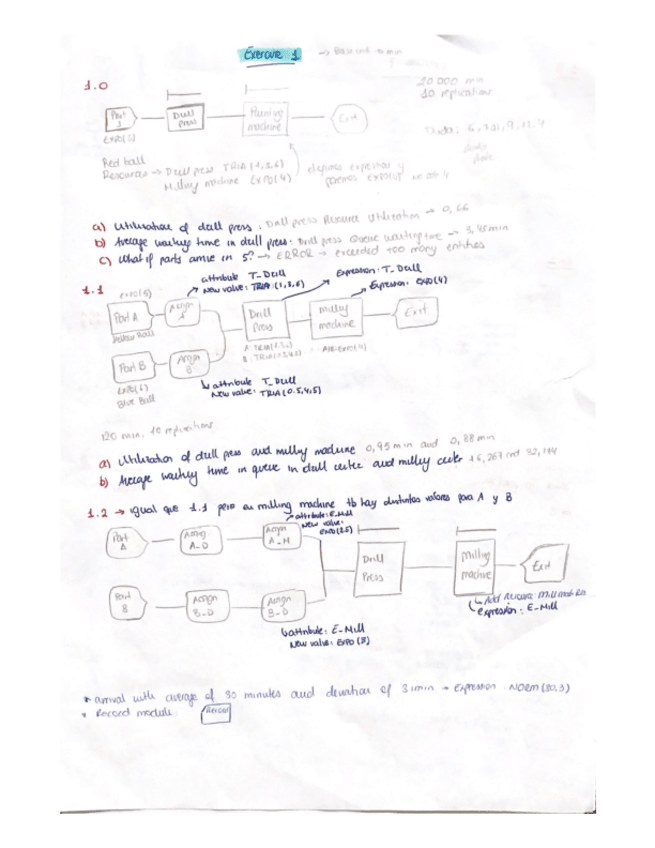 Exercise 1 → Base unit → min
1.0
20 000 min
10 replication
Part 1
Drill Press
Milling machine
Exit
EXPO(5)
Red ball
Resources → Drill press TRIA (1,3,6)
Milling machine EXPO(4)
a) Utilization of drill press: Drill press Resource Utilization → 0,66
b) Average waiting time in drill press: Drill press Queue waiting time → 3,85 min
c) What if parts arrive in 5? → ERROR → exceeded too many entities
1.1
attribute T_Drill
New value: TRIA (1,3,6)
Expression: T_Drill
Expression: EXPO(4)
EXPO(5)
Part A
Assign A
Drill Press
Milling machine
Exit
Yellow Ball
Part B
Assign B
EXPO(6)
Blue Ball
attribute T_Drill
New value: TRIA (0.5,4,5)
120 min. 10 replications
a) Utilization of drill press and milling machine 0,95 min and 0,88 min
b) Average waiting time in queue in drill center and milling center
1.2 → igual que 1.1 pero en milling machine tb hay distintos valores para A y B
attribute: E_Mill
New value: EXPO(3.5)
Part A
Assign A_D
Assign A_M
Drill Press
Milling machine
Exit
Part B
Assign B_D
Assign B_D
Add Resource: Mill mach Res
Expression: E_Mill
attribute: E_Mill
New value: EXPO (3)
* arrival with average of 30 minutes and deviation of 3 min → Expression: NORM (30,3)
* Record module: Record